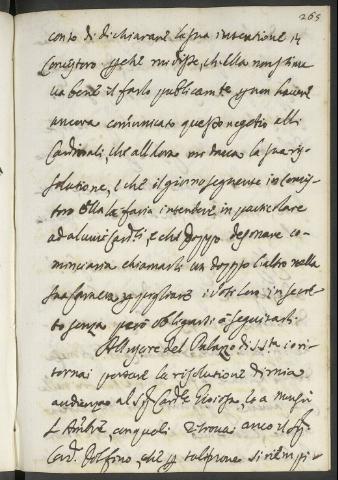 265
conto di dichiarare la sua intentione in
Concistoro perche mi disse, ch'ella non stima
va bene il farlo publicam.te per non havere
ancora com̃unicato questo negotio alli
Cardinali, che allora mi daua la sua ri-
solutione, e che il giorno seguente in Conci-
storo Ella la faria intendere in particolare
ad alcuni Card.li, e che doppo desinare co-
minciaria chiamarli un doppo l'altro nella
sua Camera per pigliare i voti loro in secre
to senza però obligarsi à seguirarli.
All'uscire del Palazzo di S. S.tà io ri-
tornai portare la risolutione di mia
audienza al S.r Card.le Gioiosa, e a Monsù
L'Amb.re, con quali ritrouai anco il S.r
Card. Dolfino, che